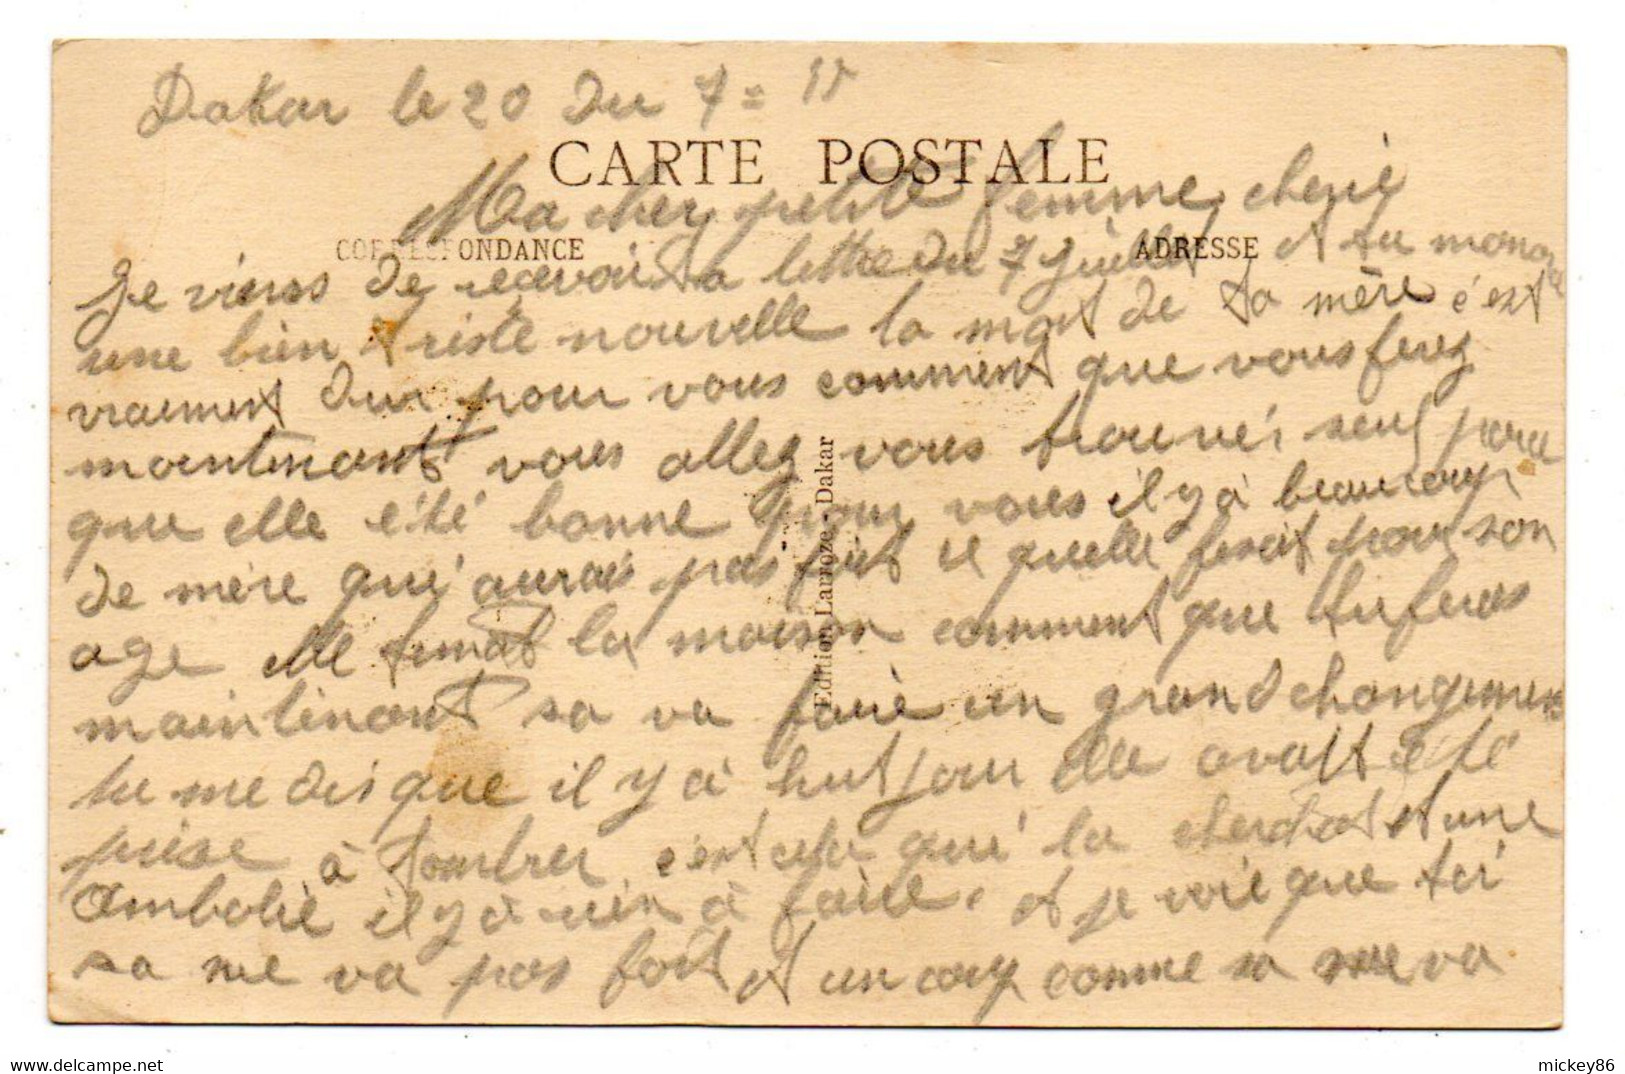 Dakar le 20 du 7 =
CARTE POSTALE
Ma cher petite femme cherie
CORRESPONDANCE
ADRESSE
Je viens de recevoir ta lettre du 7 Juillet et tu
une bien triste nouvelle la mort de ta mère c'est
vraiement dur pour vous comment que vous ferez
maintenant vous allez vous trouvér seul
que elle été bonne pour vous il y à beaucoup
de mère qui aurais pas fait se quelle fesait pour son
age elle tenait la maison comment que tu feras
maintenant sa va faire un grand changement
tu me dis que il y à huit jour elle avait été
prise à tomber c'est cela qui la cherchat et une
Ambolie il y à rien à faire. et je voie que toi
sa ne va pas fort et un coup comme sa ne va
Edition Larroze - Dakar
delcampe.net
mickey86